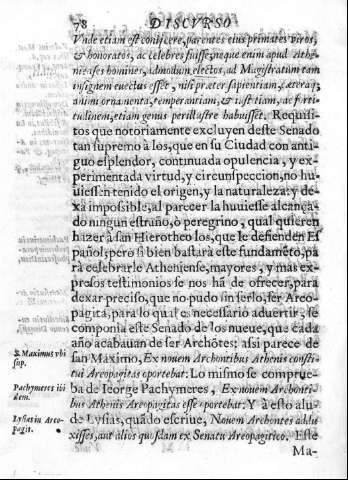 78 DISCVRSO
Vnde etiam est conijcere, parentes eius primates viros,
& honoratos, ac celebres fuisse; neque enim apud Athē-
nienses homines, admodum electos, ad Magistratum tam
insignem euectus esset, nisi præter sapientiam, cæteraq;
animi ornamenta, temperantiam, & iustitiam, ac forti-
tudinem, etiam genus perillustre habuisset. Requisi-
tos que notoriamente excluyen deste Senado
tan supremo à los, que en su Ciudad con anti-
guo esplendor, continuada opulencia, y ex-
perimentada virtud, y circunspeccion, no hu-
uiessen tenido el origen, y la naturaleza: y de-
xa impossible, al parecer la huuiesse alcança-
do ningun estraño, ò peregrino, qual quieren
hazer à san Hierotheo los, que le defienden Es
pañol; pero si bien bastarà este fundamēto, pa
ra celebrarle Atheniense, mayores, y mas ex-
presos testimonios se nos hā de ofrecer, para
dexar preciso, que no pudo sin serlo, ser Areo-
pagita, para lo qual es necessario aduertir, se
componia este Senado de los nueue, que cada
año acabauan de ser Archōtes: assi parece de
S. Maximus vbi sup.
san Maximo, Ex nouem Archontibus Athenis consti-
tui Areopagitas oportebat: Lo mismo se comprue-
Pachymeres ibi dem.
ba de Ieorge Pachymeres, Ex nouem Archonti-
bus Athenis Areopagitas esse oportebat: Y à esto alu-
Lysias in Areo-pagit.
de Lysias, quādo escriue, Nouem Archontes addu-
xisses, aut alios quosdam ex Senatu Areopagitico. Este
Ma-